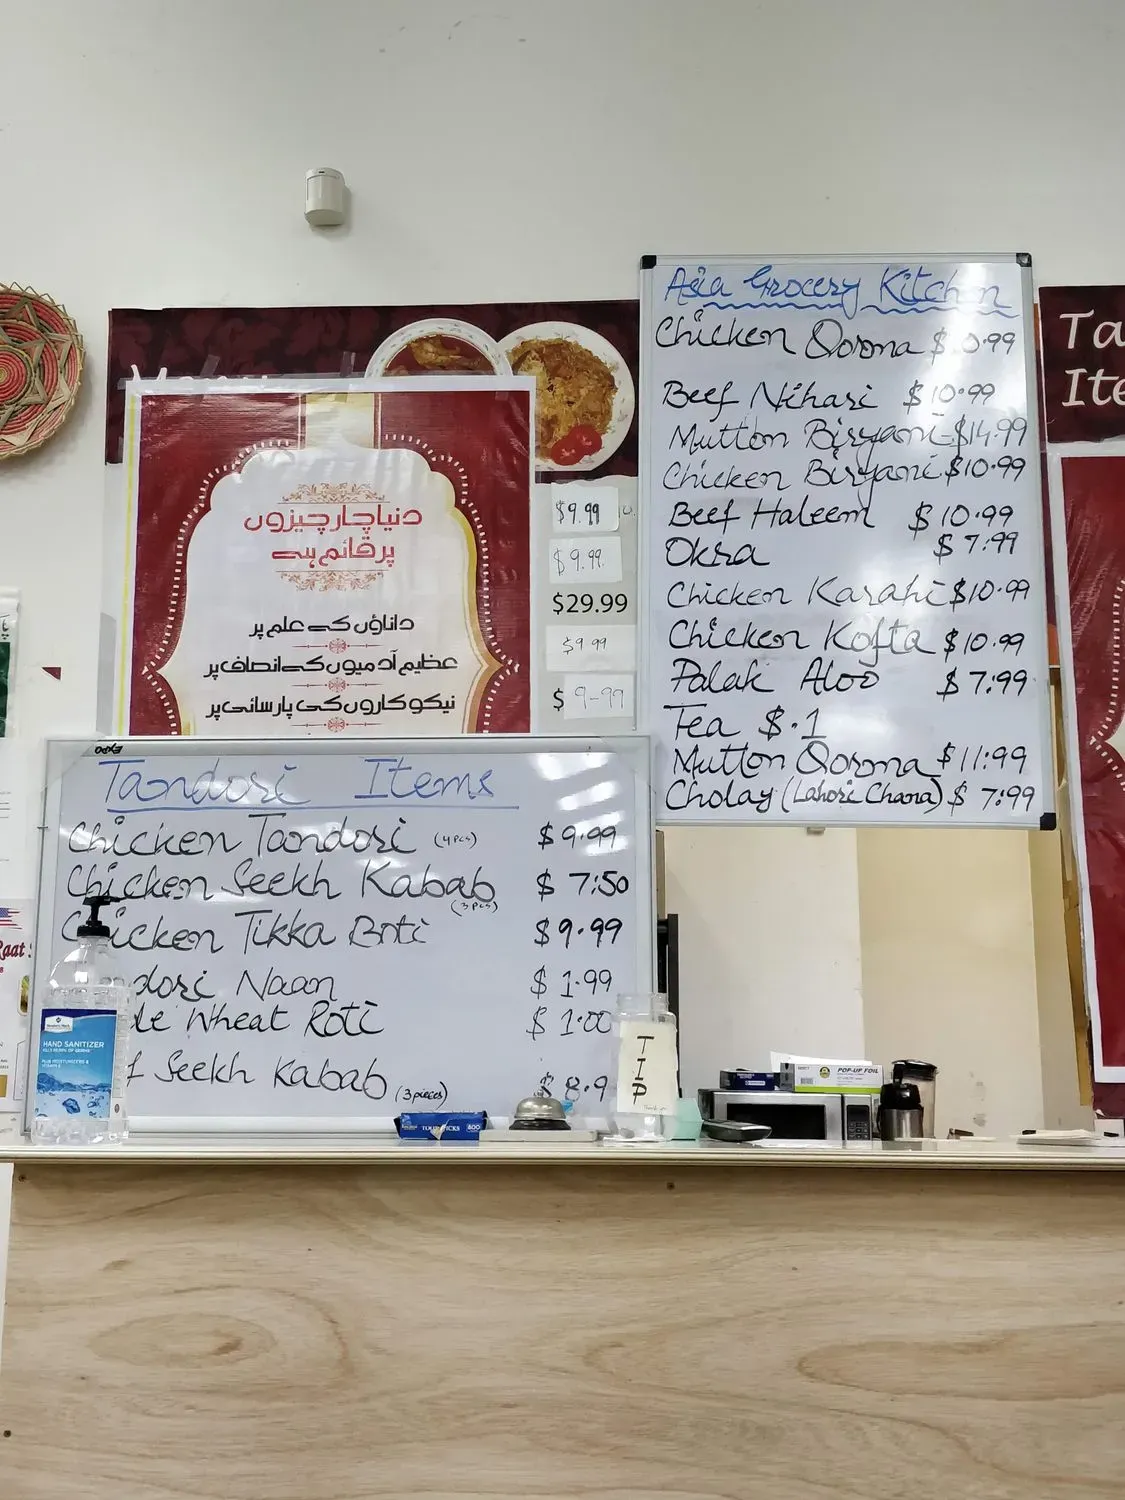 Asia Grocery Kitchen
Chicken Qorma $10.99
Beef Nihari $10.99
Mutton Biryani $14.99
Chicken Biryani $10.99
Beef Haleem $10.99
Okra $7.99
Chicken Karahi $10.99
Chicken Kofta $10.99
Palak Aloo $7.99
Tea $.1
Mutton Qorma $11:99
Cholay (Lahori Chana) $7:99
Ta
Ite
دنیا چار چیزوں
پر قائم ہے
داناؤں کے علم پر
عظیم آدمیوں کے انصاف پر
نیکوکاروں کی پارسائی پر
$9.99
$9.99
$29.99
$9.99
$9-99
EXPO
Tandori Items
Chicken Tandori (4pcs) $9.99
Chicken Seekh Kabab (3pcs) $7:50
Chicken Tikka Boti $9.99
dori Naan $1.99
le Wheat Roti $1.00
f Seekh Kabab (3pieces) $8.9
HAND SANITIZER
TIP
POP-UP FOIL
Raat